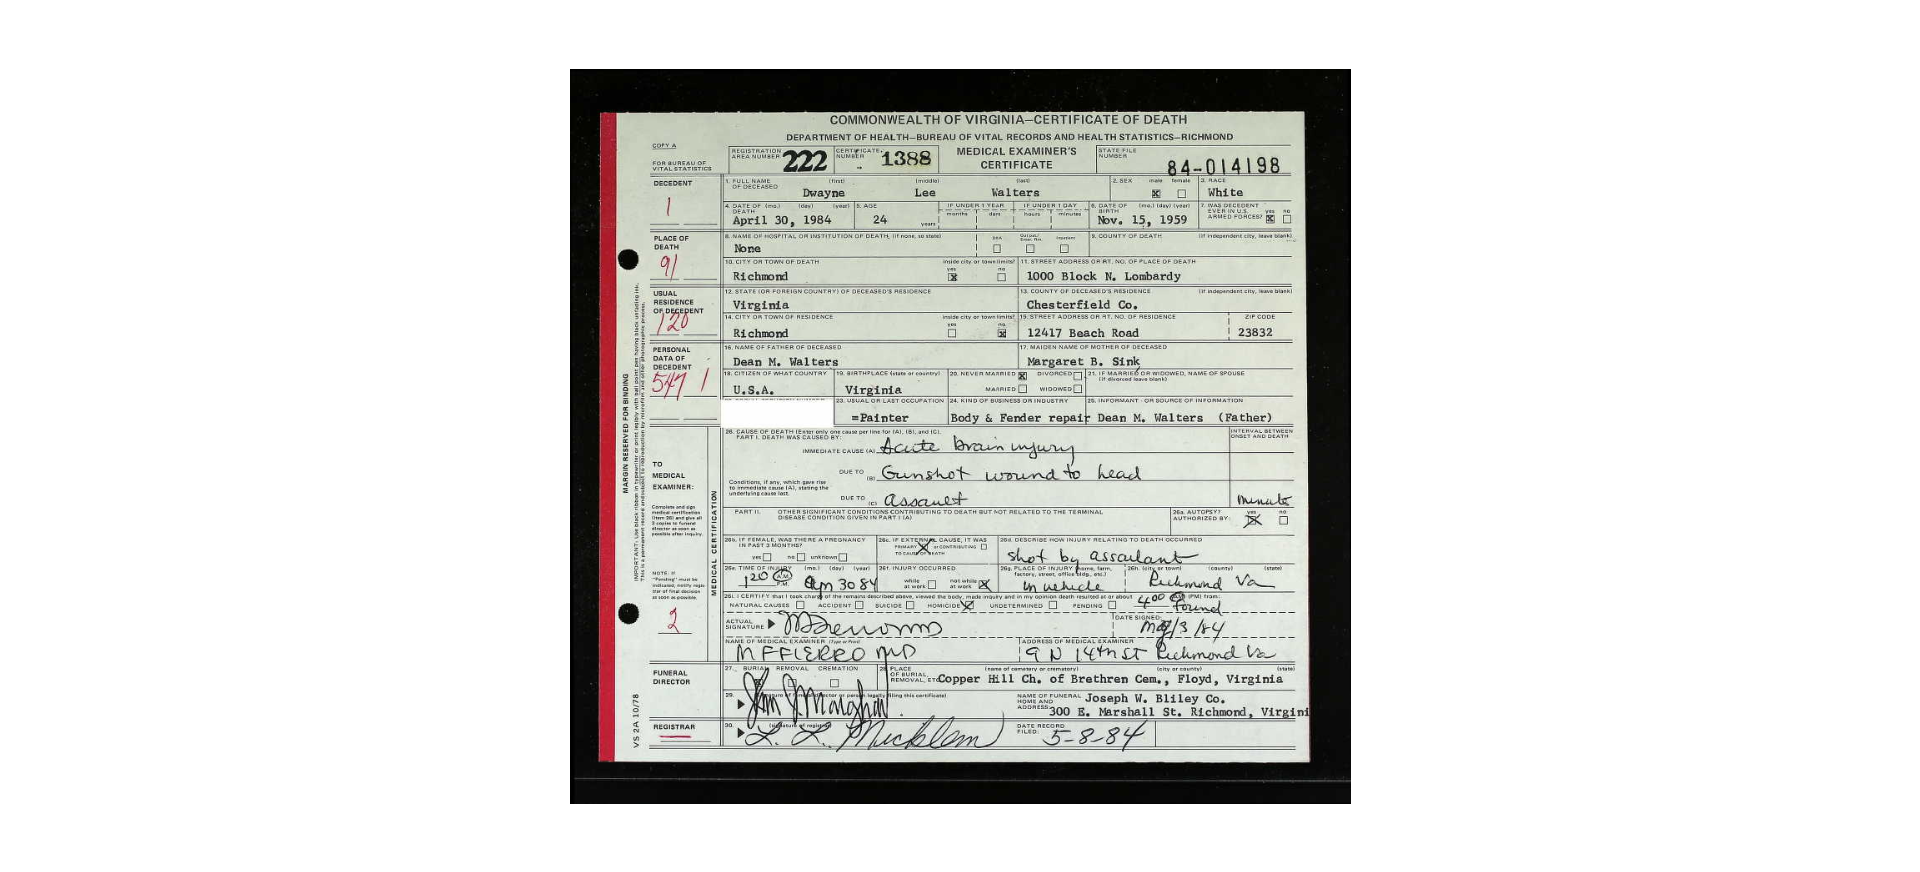 COMMONWEALTH OF VIRGINIA—CERTIFICATE OF DEATH
DEPARTMENT OF HEALTH—BUREAU OF VITAL RECORDS AND HEALTH STATISTICS—RICHMOND
COPY A
FOR BUREAU OF VITAL STATISTICS
REGISTRATION AREA NUMBER 222
CERTIFICATE NUMBER 1388
MEDICAL EXAMINER'S CERTIFICATE
STATE FILE NUMBER 84-014198
DECEDENT
1
1. FULL NAME OF DECEASED (first) (middle) (last)
Dwayne Lee Walters
2. SEX male female
3. RACE
White
4. DATE OF DEATH (mo.) (day) (year)
April 30, 1984
5. AGE
24 years
IF UNDER 1 YEAR months days
IF UNDER 1 DAY hours minutes
6. DATE OF BIRTH (mo.) (day) (year)
Nov. 15, 1959
7. WAS DECEDENT EVER IN U.S. ARMED FORCES? yes no
PLACE OF DEATH
91
8. NAME OF HOSPITAL OR INSTITUTION OF DEATH, (if none, so state)
None
DOA Inpatient
9. COUNTY OF DEATH (if independent city, leave blank)
10. CITY OR TOWN OF DEATH inside city or town limits? yes no
Richmond
11. STREET ADDRESS OR RT. NO. OF PLACE OF DEATH
1000 Block N. Lombardy
USUAL RESIDENCE OF DECEDENT
120
12. STATE (OR FOREIGN COUNTRY) OF DECEASED'S RESIDENCE
Virginia
13. COUNTY OF DECEASED'S RESIDENCE (if independent city, leave blank)
Chesterfield Co.
14. CITY OR TOWN OF RESIDENCE inside city or town limits? yes no
Richmond
15. STREET ADDRESS OR RT. NO. OF RESIDENCE ZIP CODE
12417 Beach Road 23832
PERSONAL DATA OF DECEDENT
547 1
16. NAME OF FATHER OF DECEASED
Dean M. Walters
17. MAIDEN NAME OF MOTHER OF DECEASED
Margaret B. Sink
18. CITIZEN OF WHAT COUNTRY
U.S.A.
19. BIRTHPLACE (state or country)
Virginia
20. NEVER MARRIED DIVORCED
MARRIED WIDOWED
21. IF MARRIED OR WIDOWED, NAME OF SPOUSE (if divorced leave blank)
23. USUAL OR LAST OCCUPATION
=Painter
24. KIND OF BUSINESS OR INDUSTRY
Body & Fender repair
25. INFORMANT - OR SOURCE OF INFORMATION
Dean M. Walters (Father)
MARGIN RESERVED FOR BINDING
MEDICAL CERTIFICATION
TO MEDICAL EXAMINER:
Complete and sign medical certification (item 26) and give all 3 copies to funeral director as soon as possible after inquiry.
NOTE: If "Pending" must be indicated, notify registrar of final decision as soon as possible.
2
26. CAUSE OF DEATH (Enter only one cause per line for (A), (B), and (C).
PART I. DEATH WAS CAUSED BY:
INTERVAL BETWEEN ONSET AND DEATH
IMMEDIATE CAUSE (A) Acute brain injury
DUE TO (B) Gunshot wound to head
Conditions, if any, which gave rise to immediate cause (A), stating the underlying cause last.
DUE TO (C) Assault minutes
PART II. OTHER SIGNIFICANT CONDITIONS CONTRIBUTING TO DEATH BUT NOT RELATED TO THE TERMINAL DISEASE CONDITION GIVEN IN PART I (A)
26a. AUTOPSY? yes no
AUTHORIZED BY:
26b. IF FEMALE, WAS THERE A PREGNANCY IN PAST 3 MONTHS?
yes no unknown
26c. IF EXTERNAL CAUSE, IT WAS
PRIMARY or CONTRIBUTING
TO CAUSE OF DEATH
26d. DESCRIBE HOW INJURY RELATING TO DEATH OCCURRED
shot by assailant
26e. TIME OF INJURY (mo.) (day) (year)
120 A.M. P.M. Apr 30 84
26f. INJURY OCCURRED
while at work not while at work
26g. PLACE OF INJURY (home, farm, factory, street, office bldg., etc.)
in vehicle
26h. (city or town) (county) (state)
Richmond Va
26i. I CERTIFY that I took charge of the remains described above, viewed the body, made inquiry and in my opinion death resulted at or about 400 (PM) from:
found
NATURAL CAUSES ACCIDENT SUICIDE HOMICIDE UNDETERMINED PENDING
ACTUAL SIGNATURE
DATE SIGNED:
May/3/84
NAME OF MEDICAL EXAMINER (Type or Print)
M F FIERRO MD
ADDRESS OF MEDICAL EXAMINER
9 N 14th ST Richmond Va
FUNERAL DIRECTOR
27. BURIAL REMOVAL CREMATION
28. PLACE OF BURIAL, REMOVAL, ETC. (name of cemetery or crematory) (city or county) (state)
Copper Hill Ch. of Brethren Cem., Floyd, Virginia
29. (signature of funeral director or person legally filing this certificate)
NAME OF FUNERAL HOME AND ADDRESS
Joseph W. Bliley Co.
300 E. Marshall St. Richmond, Virgini
REGISTRAR
30. (signature of registrar)
L. L. Micklem
DATE RECORD FILED:
5-8-84
VS 2A 10/78